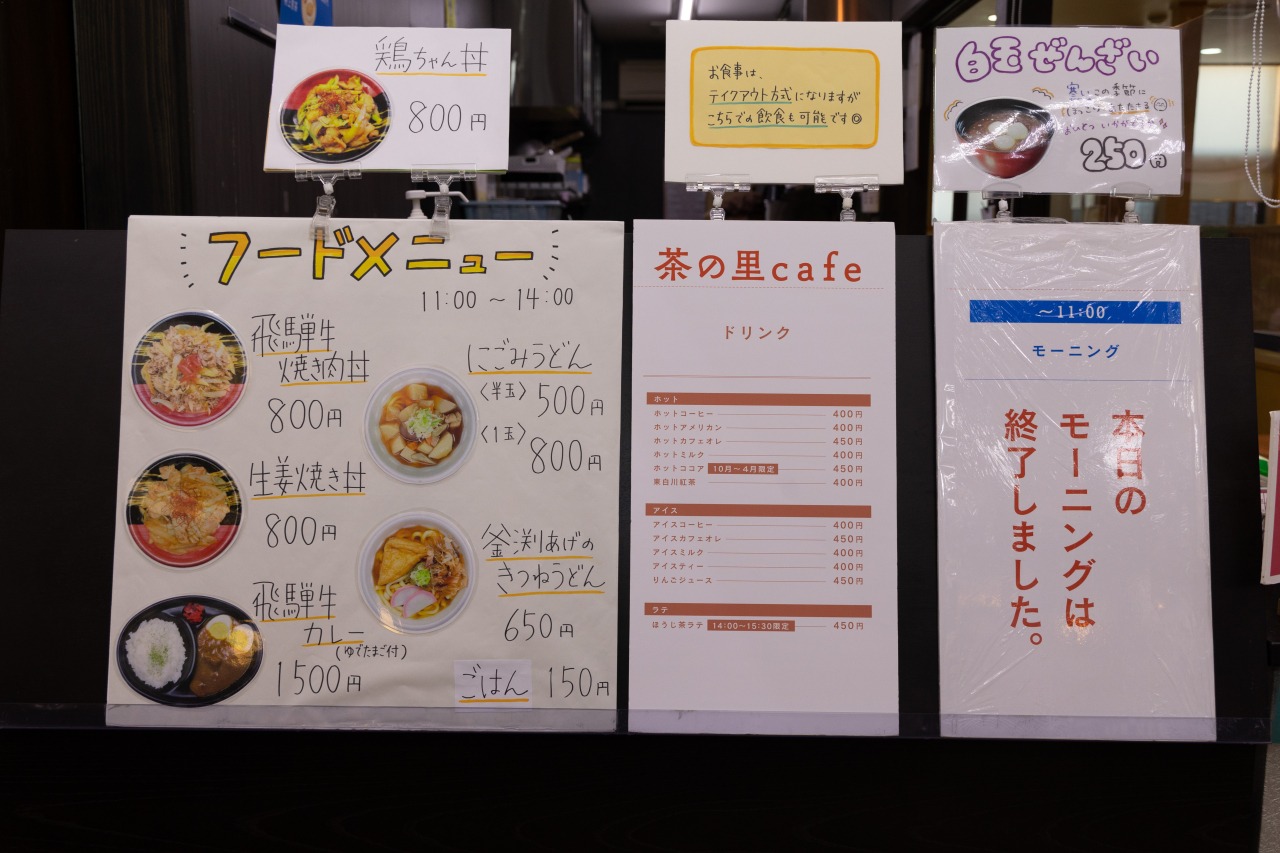 鶏ちゃん丼
800円
お食事は、
テイクアウト方式になりますが
こちらでの飲食も可能です◎
白玉ぜんざい
寒いこの季節に
おひとついかがですか
250円
フードメニュー
11:00 ～ 14:00
飛騨牛
焼き肉丼
800円
生姜焼き丼
800円
飛騨牛
カレー
(ゆでたまご付)
1500円
にごみうどん
〈半玉〉500円
〈1玉〉800円
釜渕あげの
きつねうどん
650円
ごはん 150円
茶の里cafe
ドリンク
ホット
ホットコーヒー 400円
ホットアメリカン 400円
ホットカフェオレ 450円
ホットミルク 400円
ホットココア 10月～4月限定 450円
東白川紅茶 400円
アイス
アイスコーヒー 400円
アイスカフェオレ 450円
アイスミルク 400円
アイスティー 400円
りんごジュース 450円
ラテ
ほうじ茶ラテ 14:00～15:30限定 450円
～11:00
モーニング
本日の
モーニングは
終了しました。